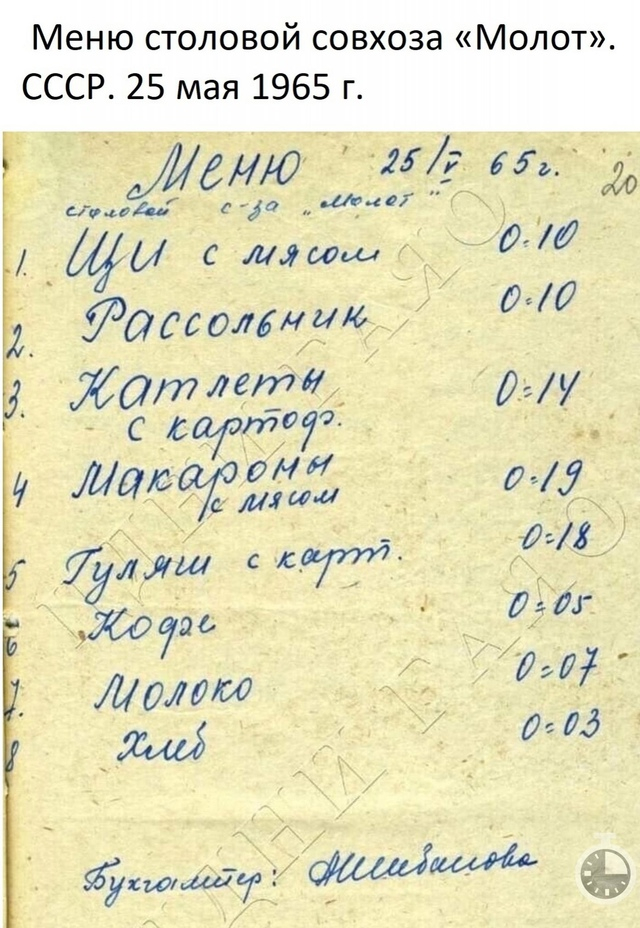 Меню столовой совхоза «Молот».
СССР. 25 мая 1965 г.
Меню 25/V 65 г. 20
столовой с-за "Молот"
1. Щи с мясом 0=10
2. Рассольник 0=10
3. Катлеты 0=14
с картоф.
4 Макароны 0=19
с мясом
5 Гуляш с карт. 0=18
6 Кофе 0=05
7. Молоко 0=07
8 Хлеб 0=03
Бухгалтер: